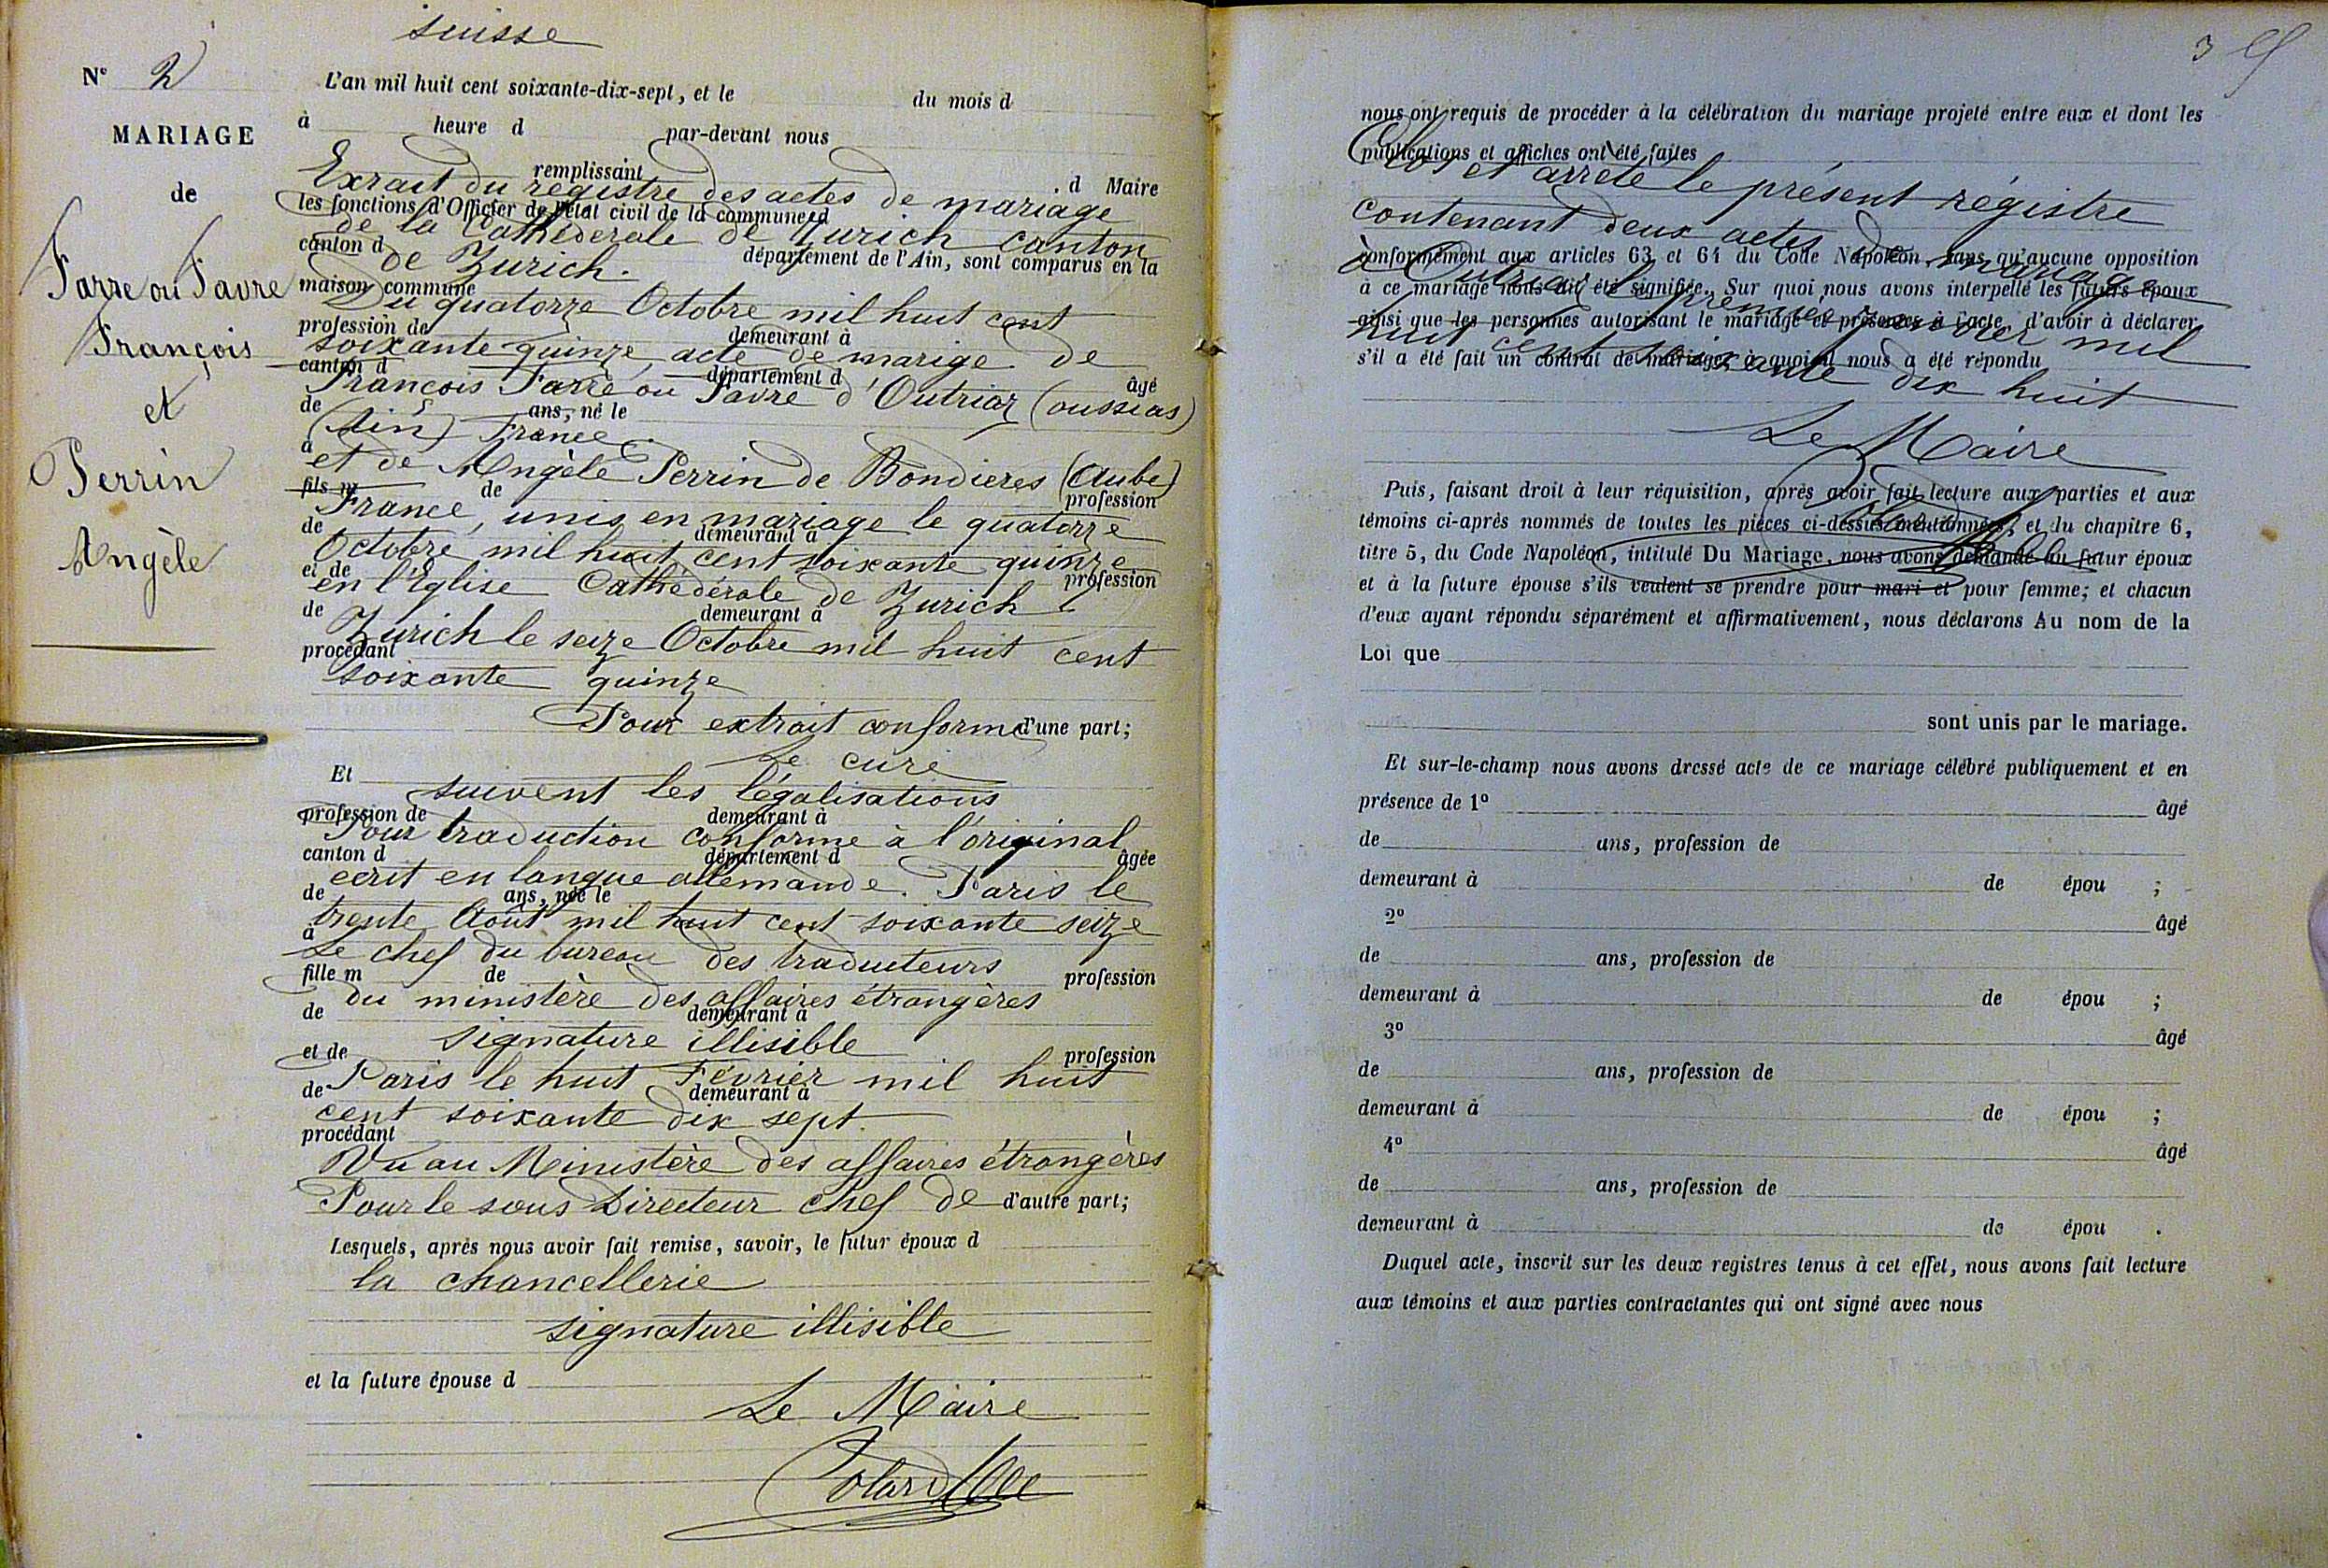 suisse
N° 2
MARIAGE
de
Farre ou Favre
François
et
Perrin
Angèle
L'an mil huit cent soixante-dix-sept, et le du mois d
à heure d par-devant nous
remplissant
Exrait du régistre des actes de mariage
. d Maire
les fonctions d'Officier de l'état civil de la commune d
de la Cathéderale de Zurich canton
canton d département de l'Ain, sont comparus en la
de Zurich.
maison commune
Du quatorze Octobre mil huit cent
profession de demeurant à
soixante quinze, acte de marige de
canton d département d âgé
François Farre ou Favre d'Outriaz (oussias)
de ans, né le
(Ain) France.
à
et de Angèle Perrin de Bondieres (Aube)
fils m de profession
France, unis en mariage le quatorze
de demeurant à
Octobre mil huit cent soixante quinze
et de profession
en l'Eglise Cathédérale de Zurich
de demeurant à
Zurich le seize Octobre mil huit cent
procédant
soixante quinze
Pour extrait conforme
d'une part;
Le curé
Et
suivent les légalisations
profession de demeurant à
Pour traduction conforme à l'original
canton d département d âgée
ecrit en langue allemande. Paris le
de ans, née le
trente Août mil huit cent soixante seize
à
Le chef du bureau des traducteurs
fille m de profession
du ministère des affaires étrangères
de demeurant à
signature illisible
et de profession
Paris le huit Février mil huit
de demeurant à
cent soixante dix sept.
procédant
Vu au Ministère des affaires étrangères
Pour le sous Directeur chef de
d'autre part;
Lesquels, après nous avoir fait remise, savoir, le futur époux d
la chancellerie
signature illisible
et la future épouse d
Le Maire
3
nous ont requis de procéder à la célébration du mariage projeté entre eux et dont les
publications et affiches ont été faites
Clos et arrêté le présent régistre
contenant deux actes de mariage
conformément aux articles 63 et 64 du Code Napoléon, sans qu'aucune opposition
à Outriaz le premier janvier mil
à ce mariage nous ait été signifiée. Sur quoi nous avons interpellé les futurs époux
ainsi que les personnes autorisant le mariage et présentes à l'acte, d'avoir à déclarer
huit cent soixante dix huit
s'il a été fait un contrat de mariage, à quoi il nous a été répondu
Le Maire
Puis, faisant droit à leur réquisition, après avoir fait lecture aux parties et aux
témoins ci-après nommés de toutes les pièces ci-dessus mentionnées, et du chapitre 6,
titre 5, du Code Napoléon, intitulé Du Mariage, nous avons demandé au futur époux
et à la future épouse s'ils veulent se prendre pour mari et pour femme; et chacun
d'eux ayant répondu séparément et affirmativement, nous déclarons Au nom de la
Loi que
sont unis par le mariage.
Et sur-le-champ nous avons dressé acte de ce mariage célébré publiquement et en
présence de 1° âgé
de ans, profession de
demeurant à de épou ;
2° âgé
de ans, profession de
demeurant à de épou ;
3° âgé
de ans, profession de
demeurant à de épou ;
4° âgé
de ans, profession de
demeurant à de épou .
Duquel acte, inscrit sur les deux registres tenus à cet effet, nous avons fait lecture
aux témoins et aux parties contractantes qui ont signé avec nous